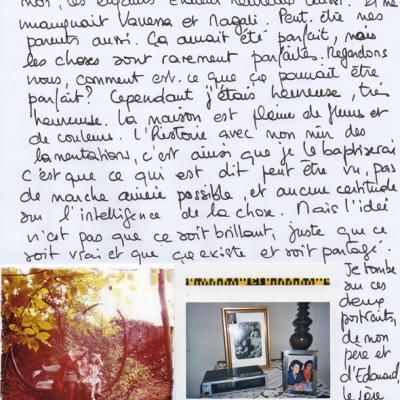 moi, les enfants étaient heureux aussi. Il me
manquait Vanessa et Magali. Peut. être mes
parents aussi. Ça aurait été parfait, mais
les choses sont rarement parfaites. Regardons
nous, comment est. ce que ça pourrait être
parfait? Cependant j'étais heureuse, très
heureuse. La maison est pleine de fleurs et
de couleurs. L'histoire avec mon mur des
lamentations, c'est ainsi que je le baptiserai
c'est que ce qui est dit peut être vu, pas
de marche arrière possible, et aucune certitude
sur l'intelligence de la chose. Mais l'idée
n'est pas que ce soit brillant, juste que ce
soit vrai et que ça existe et soit partagé.
Je tombe
sur ces
deux
portraits,
de mon
père et
d'Edouard,
le père